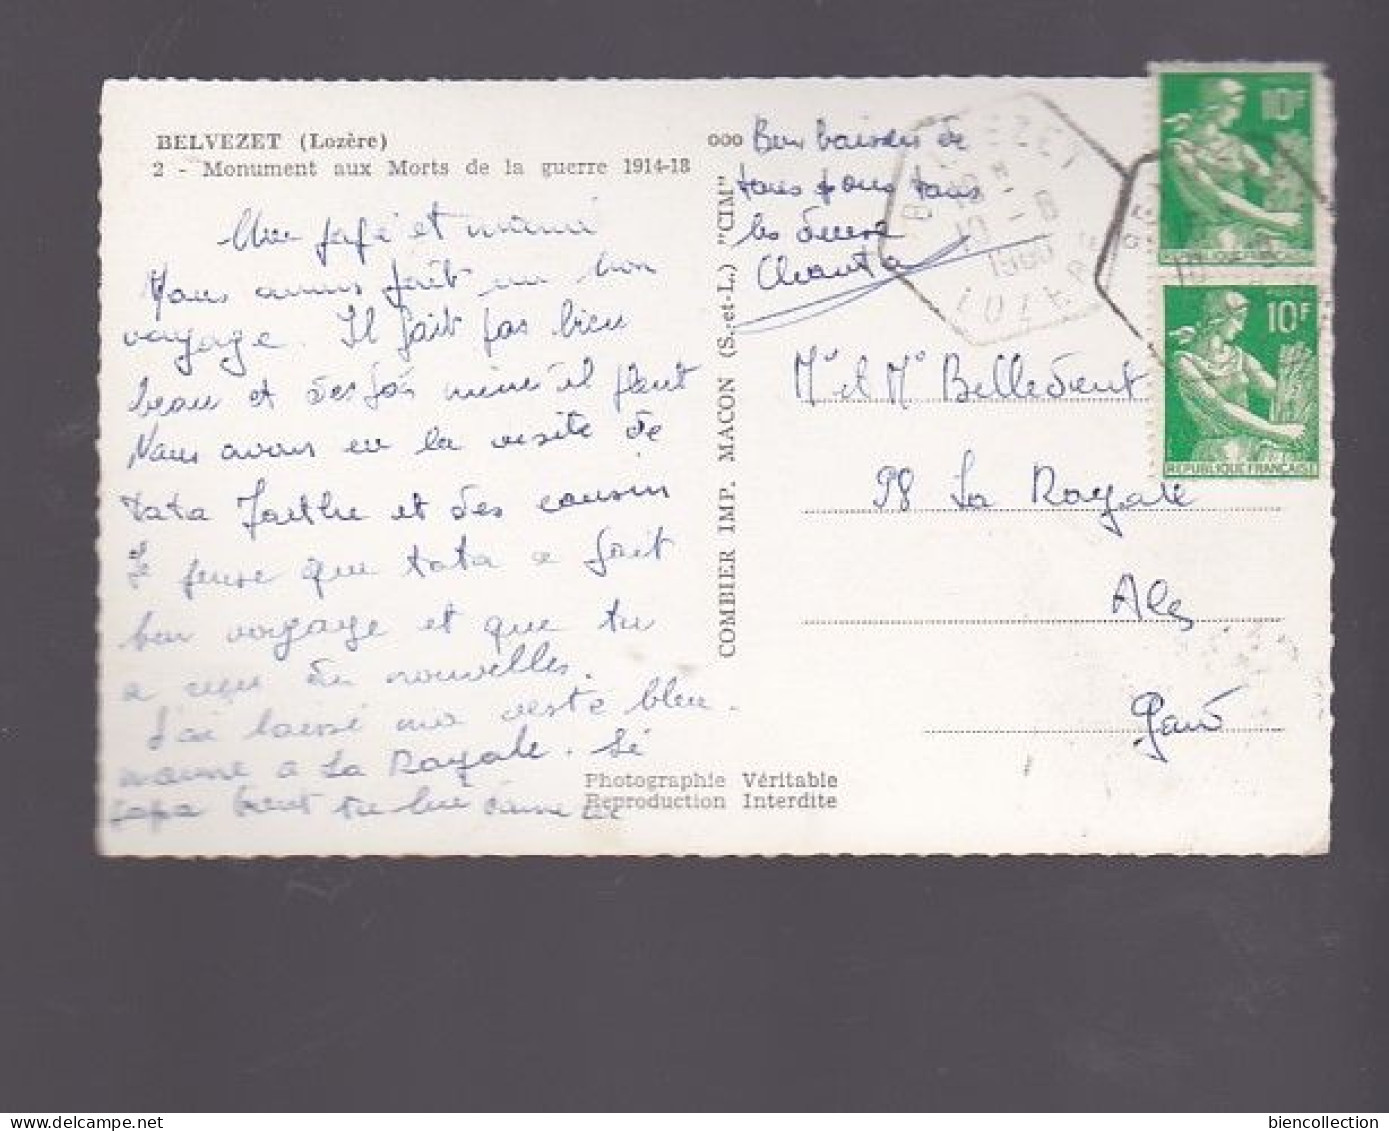 BELVEZET (Lozère)
2 - Monument aux Morts de la guerre 1914-18
papé et mémé
Nous avons fait un bon
voyage. Il fait pas bien
beau et des fois même il pleut
Nous avons eu la visite de
tata et des cousin
Je pense que tata a fait
bon voyage et que tu
a reçu des nouvelles.
J'ai laissé ma veste bleu
marine a La Royale. Si
papa vient tu lui donne
Photographie Véritable
Reproduction Interdite
COMBIER IMP. MACON (S.-et-L.) "CIM"
ooo
Bon baisers de
tous pour tous
les deux
Chantal
BELVEZET
10 - 8
1960
LOZERE
10F
REPUBLIQUE FRANÇAISE
10F
REPUBLIQUE FRANÇAISE
Mr et Me Belledent
98 La Royale
Ales
Gard
biencollection